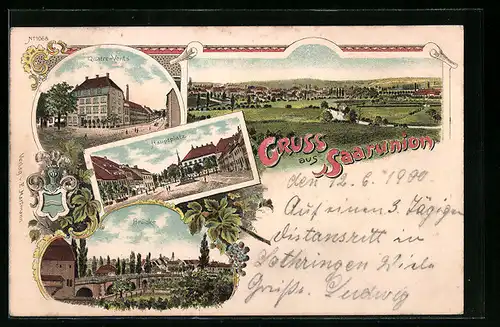 No 1068
Quatre-Vents
Hauptplatz
GRUSS
aus Saarunion
Brücke
den 12.6. 1900.
Auf einen 3 Tägigen
Distansritt in
Lothringen Viele
Grüße. Ludwig
Verlag v.